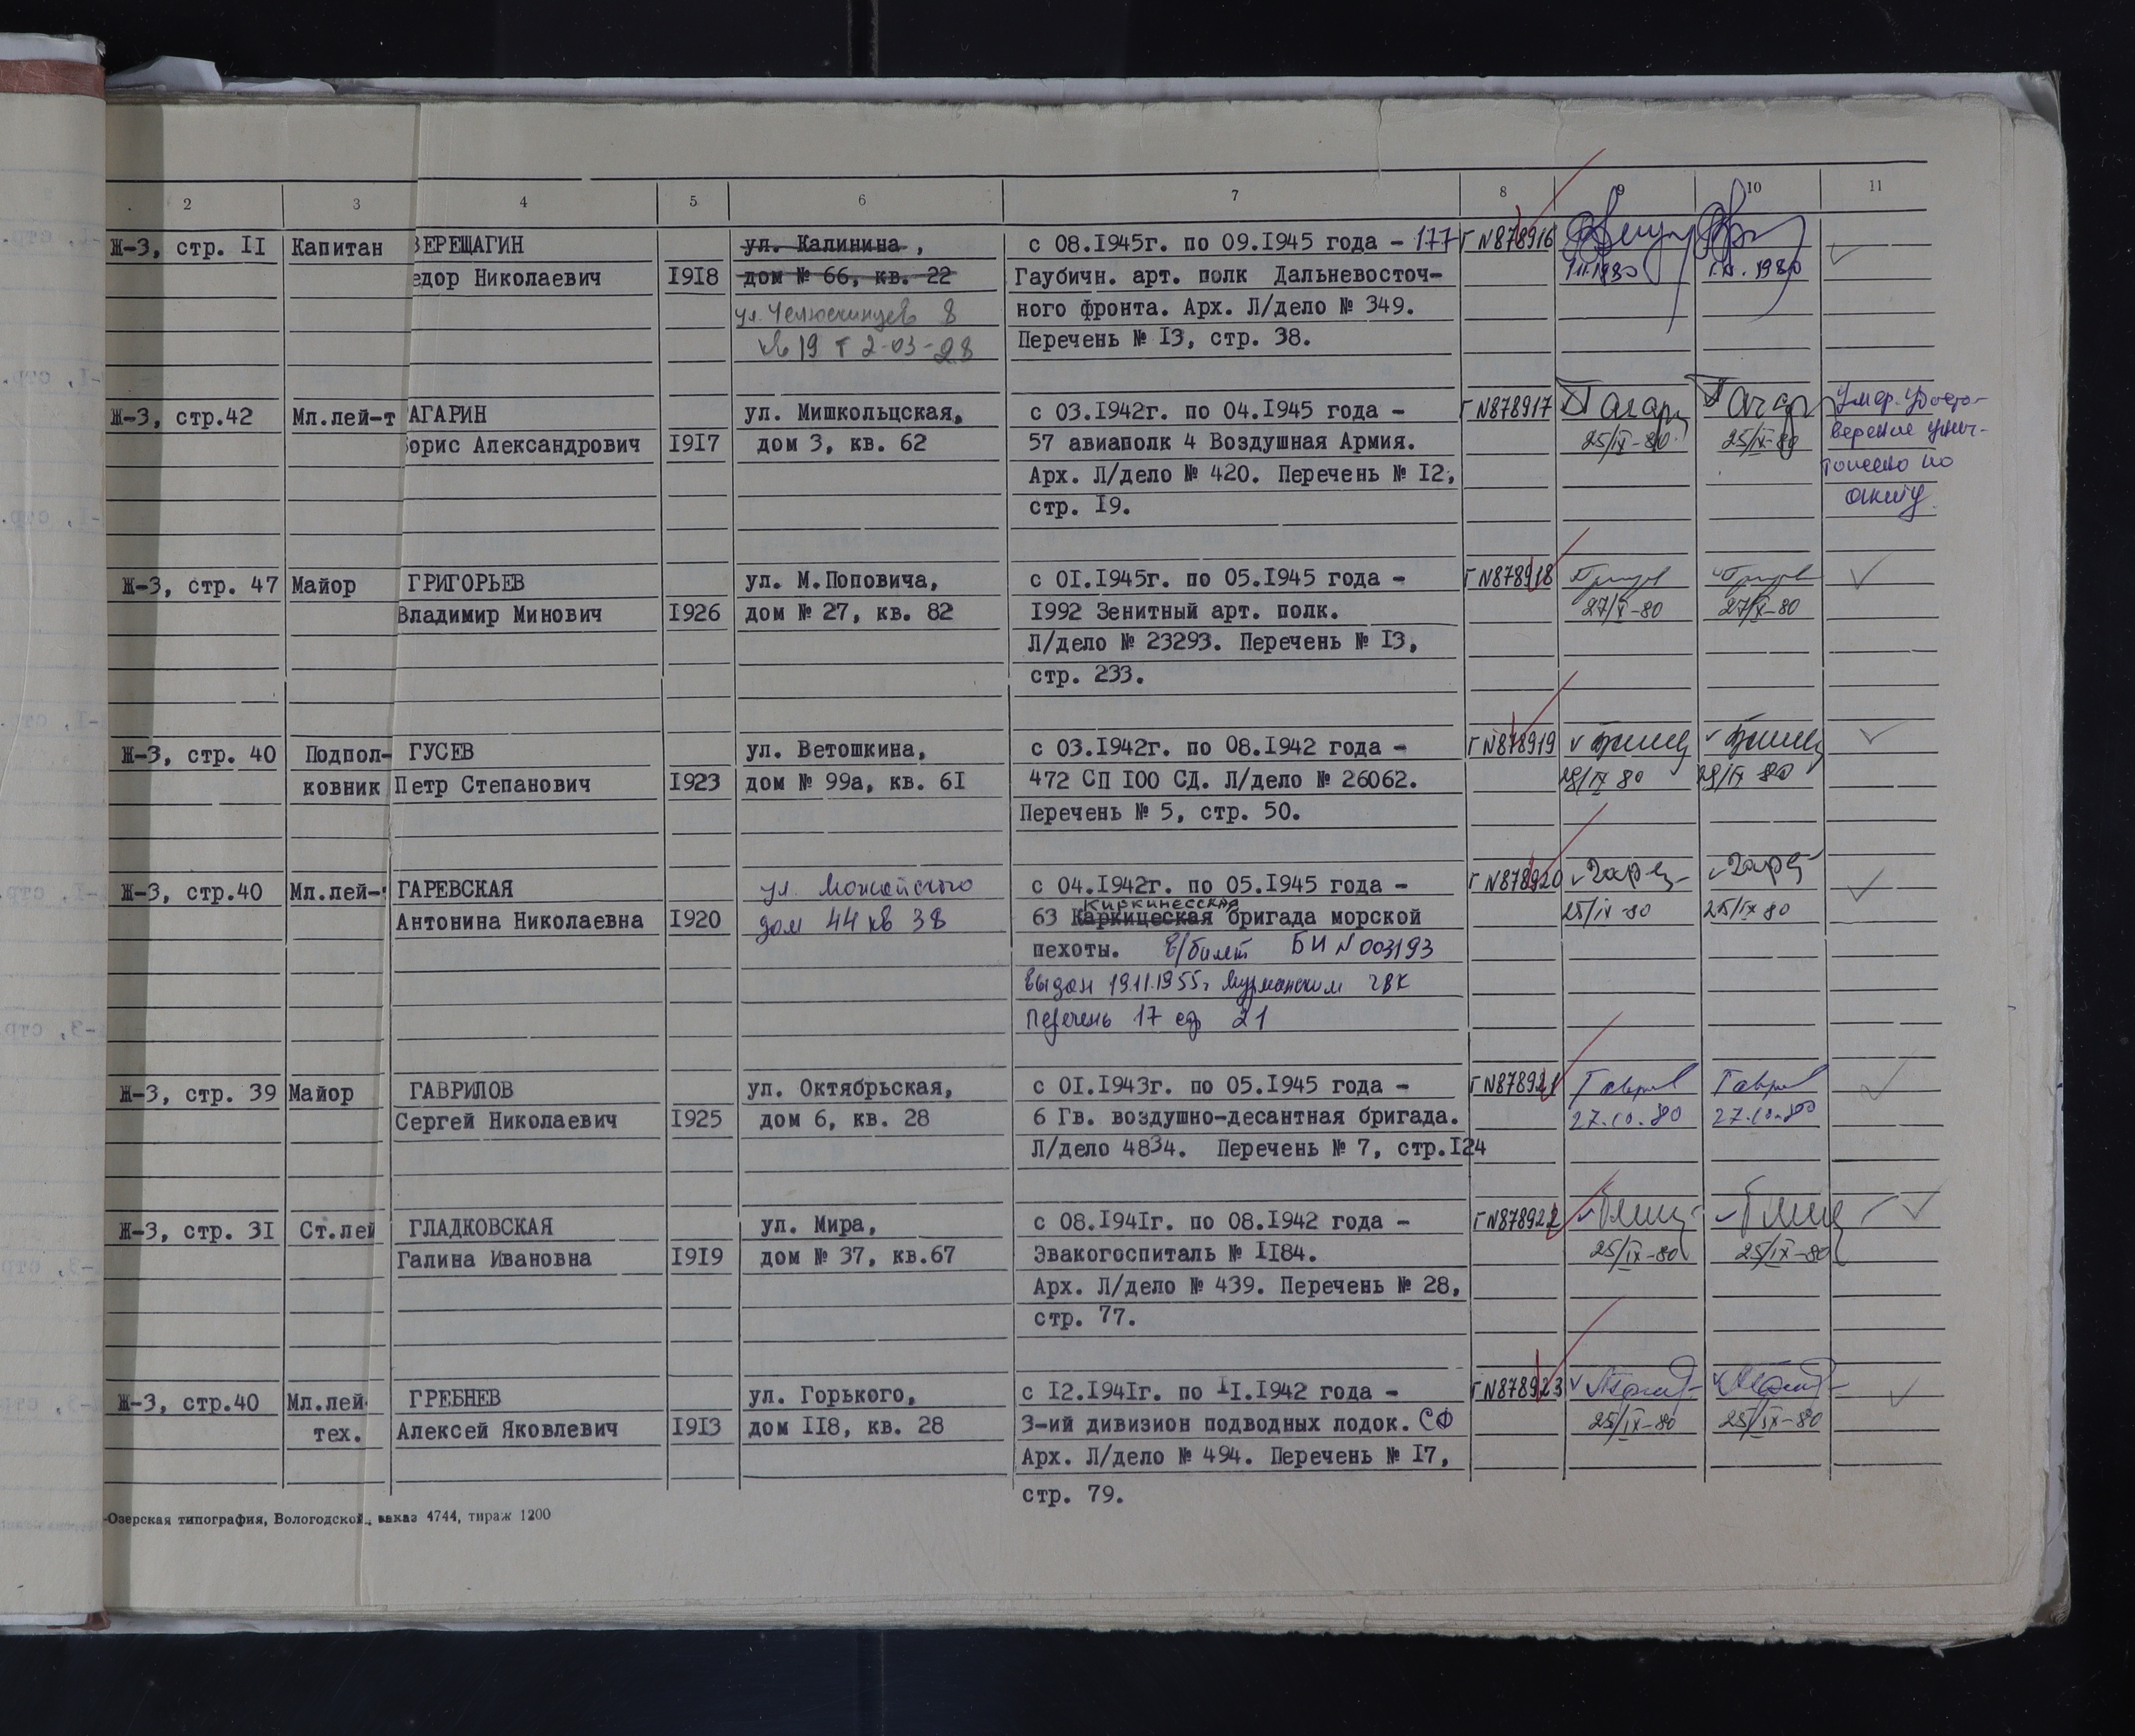 2 3 4 5 6 7 8 9 10 11
Ж-3, стр. II Капитан ВЕРЕЩАГИН ул. Калинина, с 08.I945г. по 09.I945 года - 177 Г N878916
едор Николаевич I9I8 дом № 66, кв. 22 Гаубичн. арт. полк Дальневосточ- 1.II.1980
ул. Челюскинцев 8 ного фронта. Арх. Л/дело № 349.
кв 19 т 2-03-28 Перечень № I3, стр. 38.
Ж-3, стр.42 Мл.лей-т АГАРИН ул. Мишкольцская, с 03.I942г. по 04.I945 года - Г N878917 Умер. Удосто-
орис Александрович I9I7 дом 3, кв. 62 57 авиаполк 4 Воздушная Армия. 25/IX-80 25/IX-80 верение унич-
Арх. Л/дело № 420. Перечень № I2, тожено по
стр. I9. акту.
Ж-3, стр. 47 Майор ГРИГОРЬЕВ ул. М.Поповича, с 0I.I945г. по 05.I945 года - Г N878918
Владимир Минович I926 дом № 27, кв. 82 I992 Зенитный арт. полк. 27/X-80 27/X-80
Л/дело № 23293. Перечень № I3,
стр. 233.
Ж-3, стр. 40 Подпол- ГУСЕВ ул. Ветошкина, с 03.I942г. по 08.I942 года - Г N878919
ковник Петр Степанович I923 дом № 99а, кв. 6I 472 СП I00 СД. Л/дело № 26062. 29/IX 80 29/IX 80
Перечень № 5, стр. 50.
Ж-3, стр.40 Мл.лей- ГАРЕВСКАЯ ул. Можайского с 04.I942г. по 05.I945 года - Г N878920
Киркинесская
Антонина Николаевна I920 дом 44 кв 38 63 Каркицеская бригада морской 25/IX-80 25/IX 80
пехоты. В/билет БИ N 003193
выдан 19.11.1955г Мурманским ГВК
Перечень 17 стр 21
Ж-3, стр. 39 Майор ГАВРИЛОВ ул. Октябрьская, с 0I.I943г. по 05.I945 года - Г N878921 Гаврилов Гаврилов
Сергей Николаевич I925 дом 6, кв. 28 6 Гв. воздушно-десантная бригада. 27.10.80 27.10.80
Л/дело 4834. Перечень № 7, стр.I24
Ж-3, стр. 3I Ст.лей ГЛАДКОВСКАЯ ул. Мира, с 08.I94Iг. по 08.I942 года - Г N878922
Галина Ивановна I9I9 дом № 37, кв.67 Эвакогоспиталь № II84. 25/IX-80 25/IX-80
Арх. Л/дело № 439. Перечень № 28,
стр. 77.
Ж-3, стр.40 Мл.лей ГРЕБНЕВ ул. Горького, с I2.I94Iг. по II.I942 года - Г N878923
тех. Алексей Яковлевич I9I3 дом II8, кв. 28 3-ий дивизион подводных лодок. СФ 25/IX-80 25/IX-80
Арх. Л/дело № 494. Перечень № I7,
стр. 79.
Озерская типография, Вологодской., заказ 4744, тираж 1200